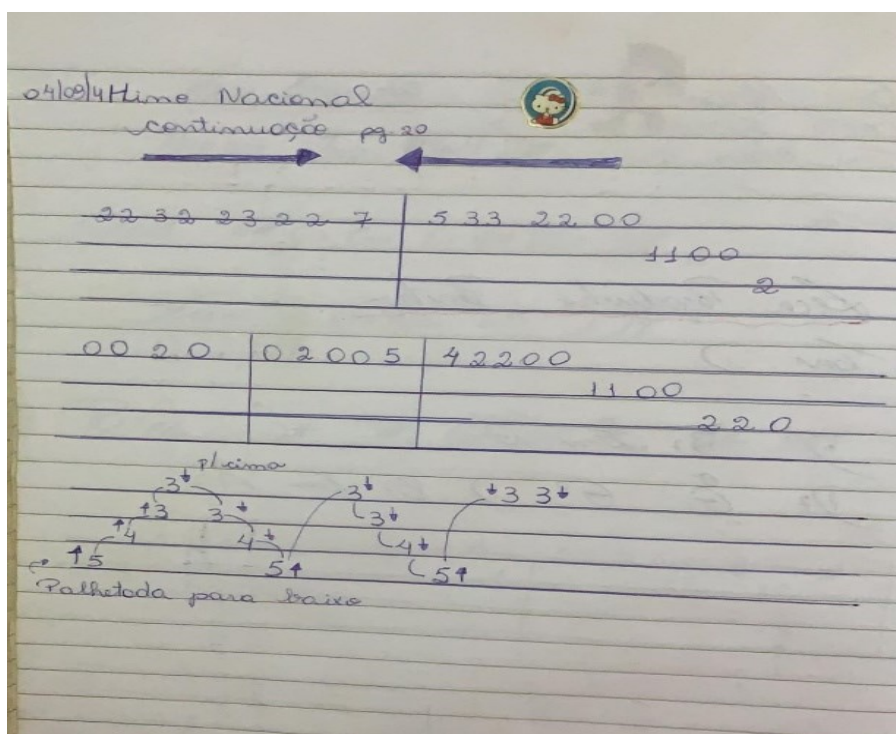 04/09/4 Hino Nacional
continuação pg. 20
22 32 23 22 7 5 33 22 00
1100
2
00 20 02005 42200
1100
220
p/ cima
3↓ 3↓ ↓3 3↓
↑3 3↓ 3↓
↑4 4↓ 4↓
↑5 5↑ 5↑
Palhetada para baixo